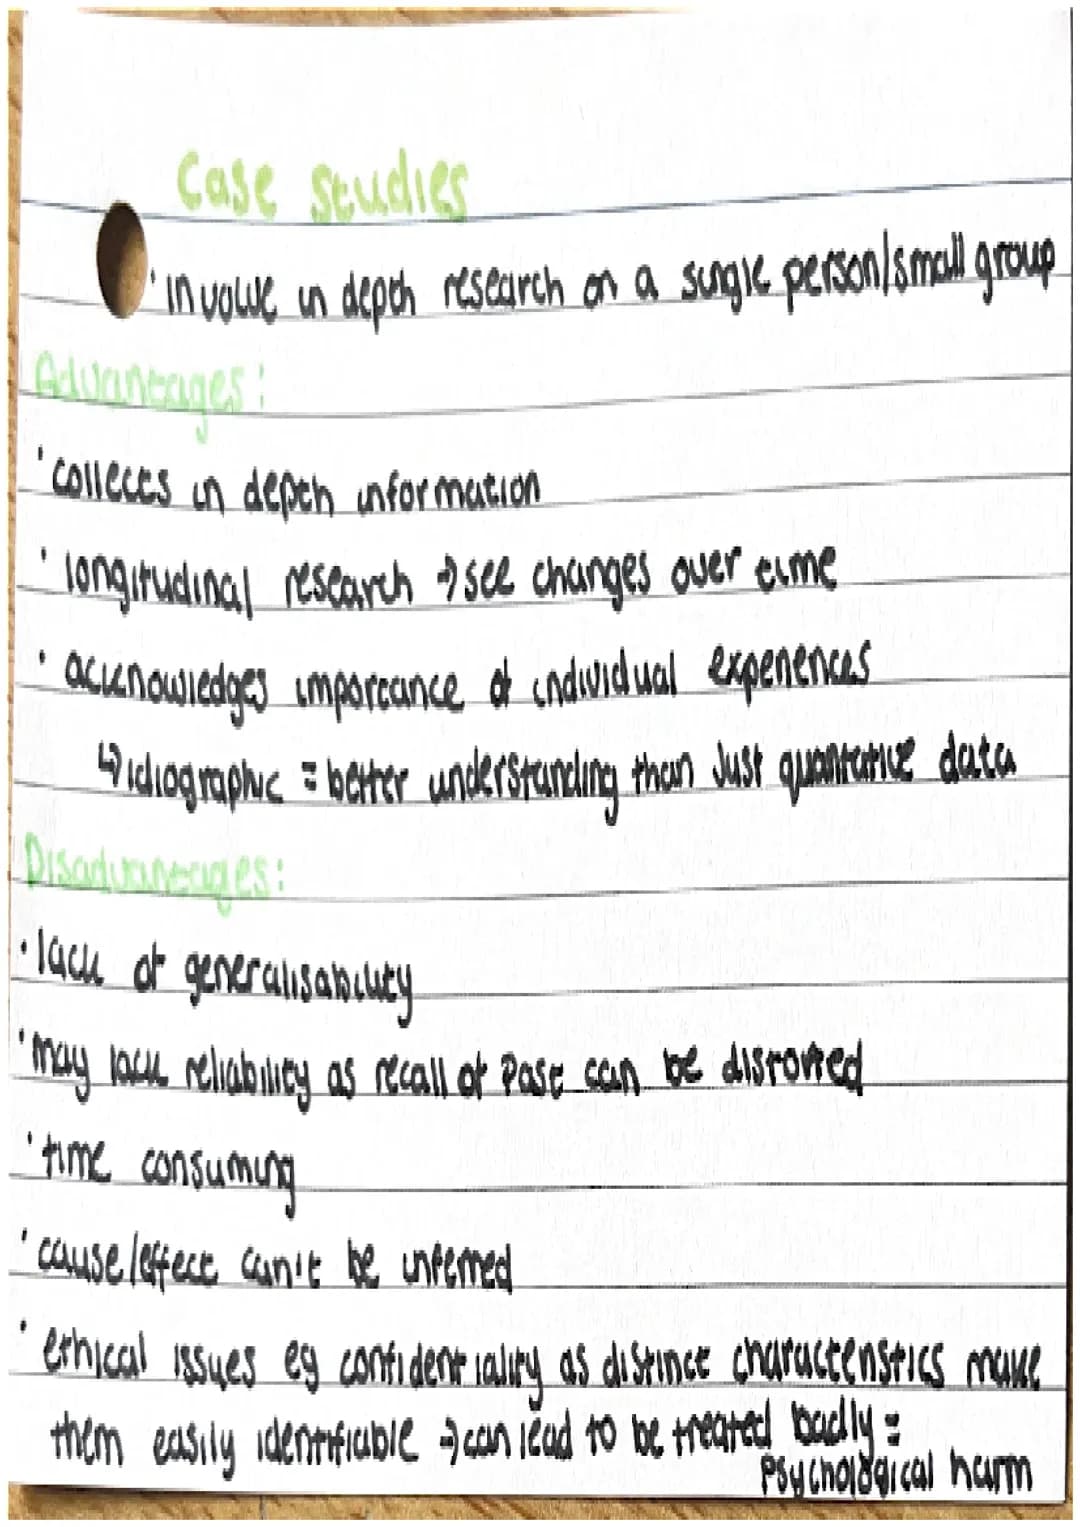 Case studies
· involve in depth research on a single person/small group
Advantages:
· collects in depth information
· longitudinal research → see changes over time
· acknowledges importance of individual experiences
↳ idiographic = better understanding than Just quantative data
Disadvantages:
· lack of generalisability
· may lack reliability as recall of past can be distorted
· time consuming
· cause/effect can't be inferred
· ethical issues eg confidentiality as distinct characteristics make
them easily identifiable → can lead to be treated badly =
Psychological harm